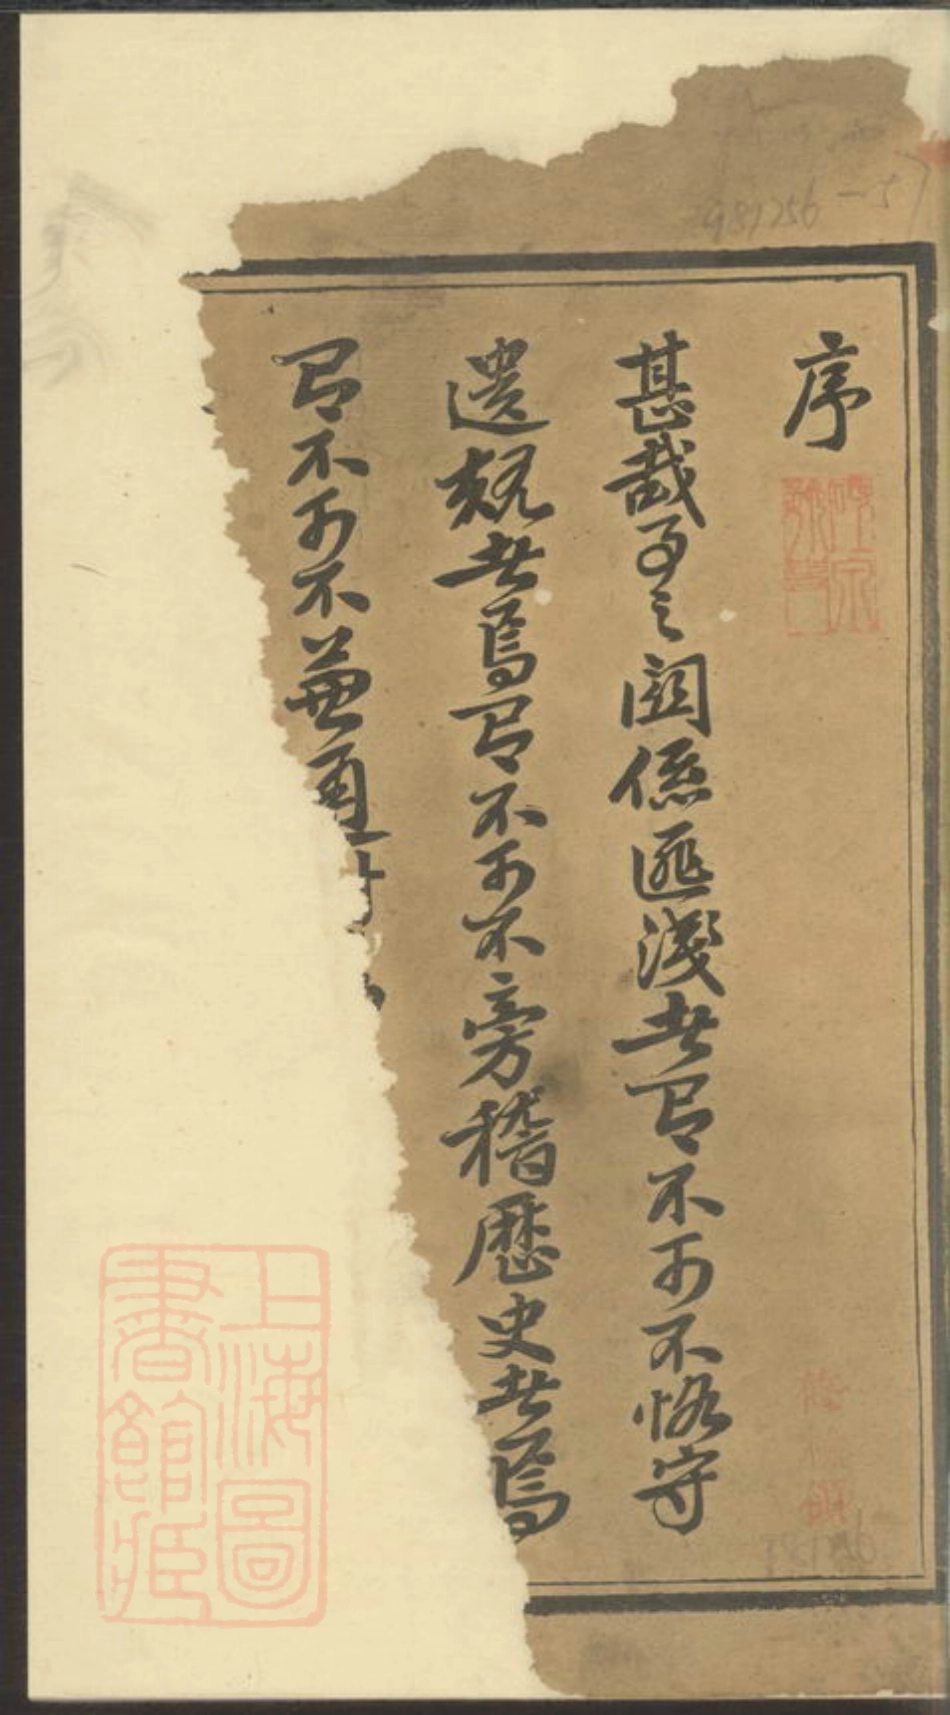 序
甚哉事之關係匪淺者有不可不恪守
遺規者焉有不可不旁稽歷史者焉
有不可不兼通
981256-57
上海圖
書館藏